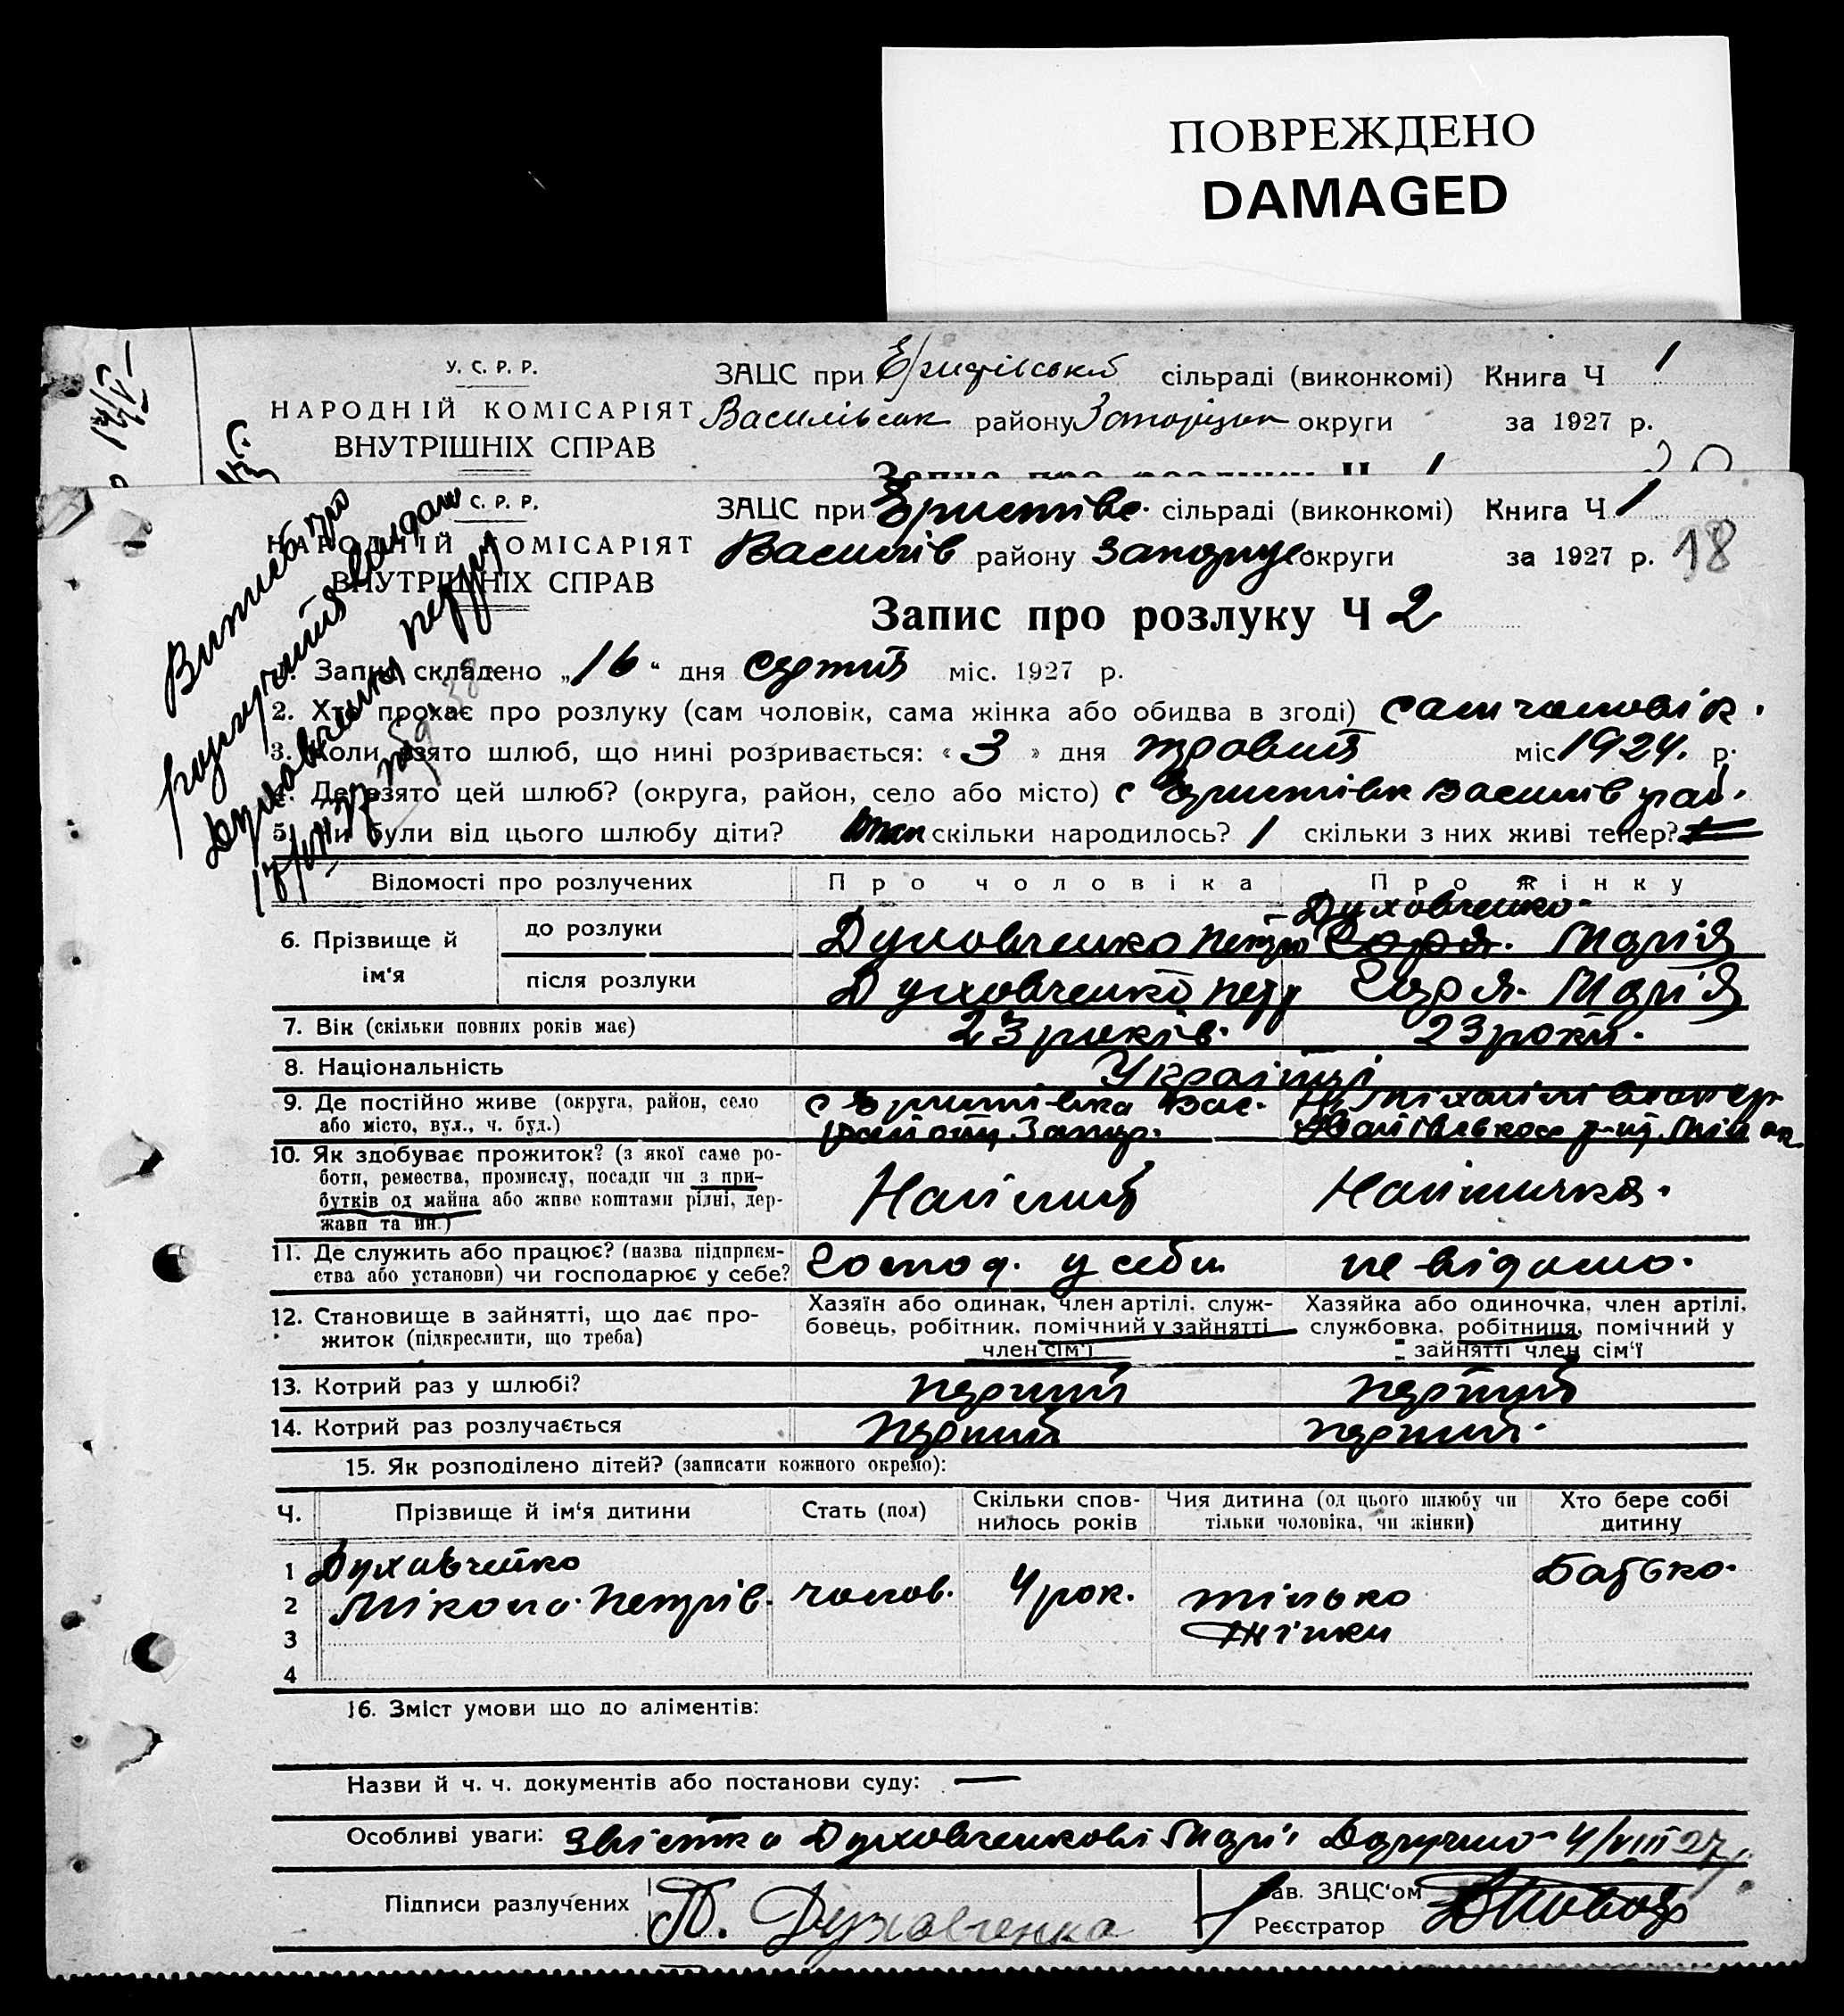 ПОВРЕЖДЕНО
DAMAGED
У. С. Р. Р.
НАРОДНІЙ КОМІСАРІЯТ
ВНУТРІШНІХ СПРАВ
ЗАЦС при сільраді (виконкомі) Книга Ч 1
Василівськ району округи за 1927 р.
Запис про розлуку Ч 1
С. Р. Р.
НАРОДНІЙ КОМІСАРІЯТ
ВНУТРІШНІХ СПРАВ
ЗАЦС при сільраді (виконкомі) Книга Ч 1
Василів району Запоріж округи за 1927 р. 18
Запис про розлуку Ч 2
1. Запис складено „16" дня міс. 1927 р.
2. Хто прохає про розлуку (сам чоловік, сама жінка або обидва в згоді) сам чоловік.
3. Коли взято шлюб, що нині розривається: « 3 » дня травня міс 1924. р.
4. Де взято цей шлюб? (округа, район, село або місто) с Василів рай.
5. Чи були від цього шлюбу діти? скільки народилось? 1 скільки з них живі тепер?
Відомості про розлучених Про чоловіка Про жінку
6. Прізвище й ім'я
до розлуки Духовченко Петро Духовченко Марія
після розлуки Духовченко Петр Марія
7. Вік (скільки повних років має) 23 років. 23 роки.
8. Національність Українці
9. Де постійно живе (округа, район, село
або місто, вул., ч. буд.)
району Запор.
10. Як здобуває прожиток? (з якої саме ро-
боти, ремества, промислу, посади чи з при-
бутків од майна або живе коштами рідні, дер-
жави та ин.)
Наймит Наймичка.
11. Де служить або працює? (назва підприєм-
ства або установи) чи господарює у себе?
Господ. у себе не відомо.
12. Становище в зайнятті, що дає про-
житок (підкреслити, що треба)
Хазяїн або одинак, член артілі, служ-
бовець, робітник, помічний у зайнятті
член сім'ї
Хазяйка або одиночка, член артілі,
службовка, робітниця, помічний у
зайнятті член сім'ї
13. Котрий раз у шлюбі? перший перший
14. Котрий раз розлучається перший перший.
15. Як розподілено дітей? (записати кожного окремо):
Ч. Прізвище й ім'я дитини Стать (пол) Скільки спов-
нилось років Чия дитина (од цього шлюбу чи
тільки чоловіка, чи жінки) Хто бере собі
дитину
1 Духовченко Батько.
2 Мікола Петрів. чолов. 4 рок. тілько
3 жінки
4
16. Зміст умови що до аліментів:
Назви й ч. ч. документів або постанови суду: —
Особливі уваги: Звістка Духовченкові Марі Доручено 4/VIII 27
Підписи разлучених П. Духовченко
Зав. ЗАЦС'ом
Реєстратор